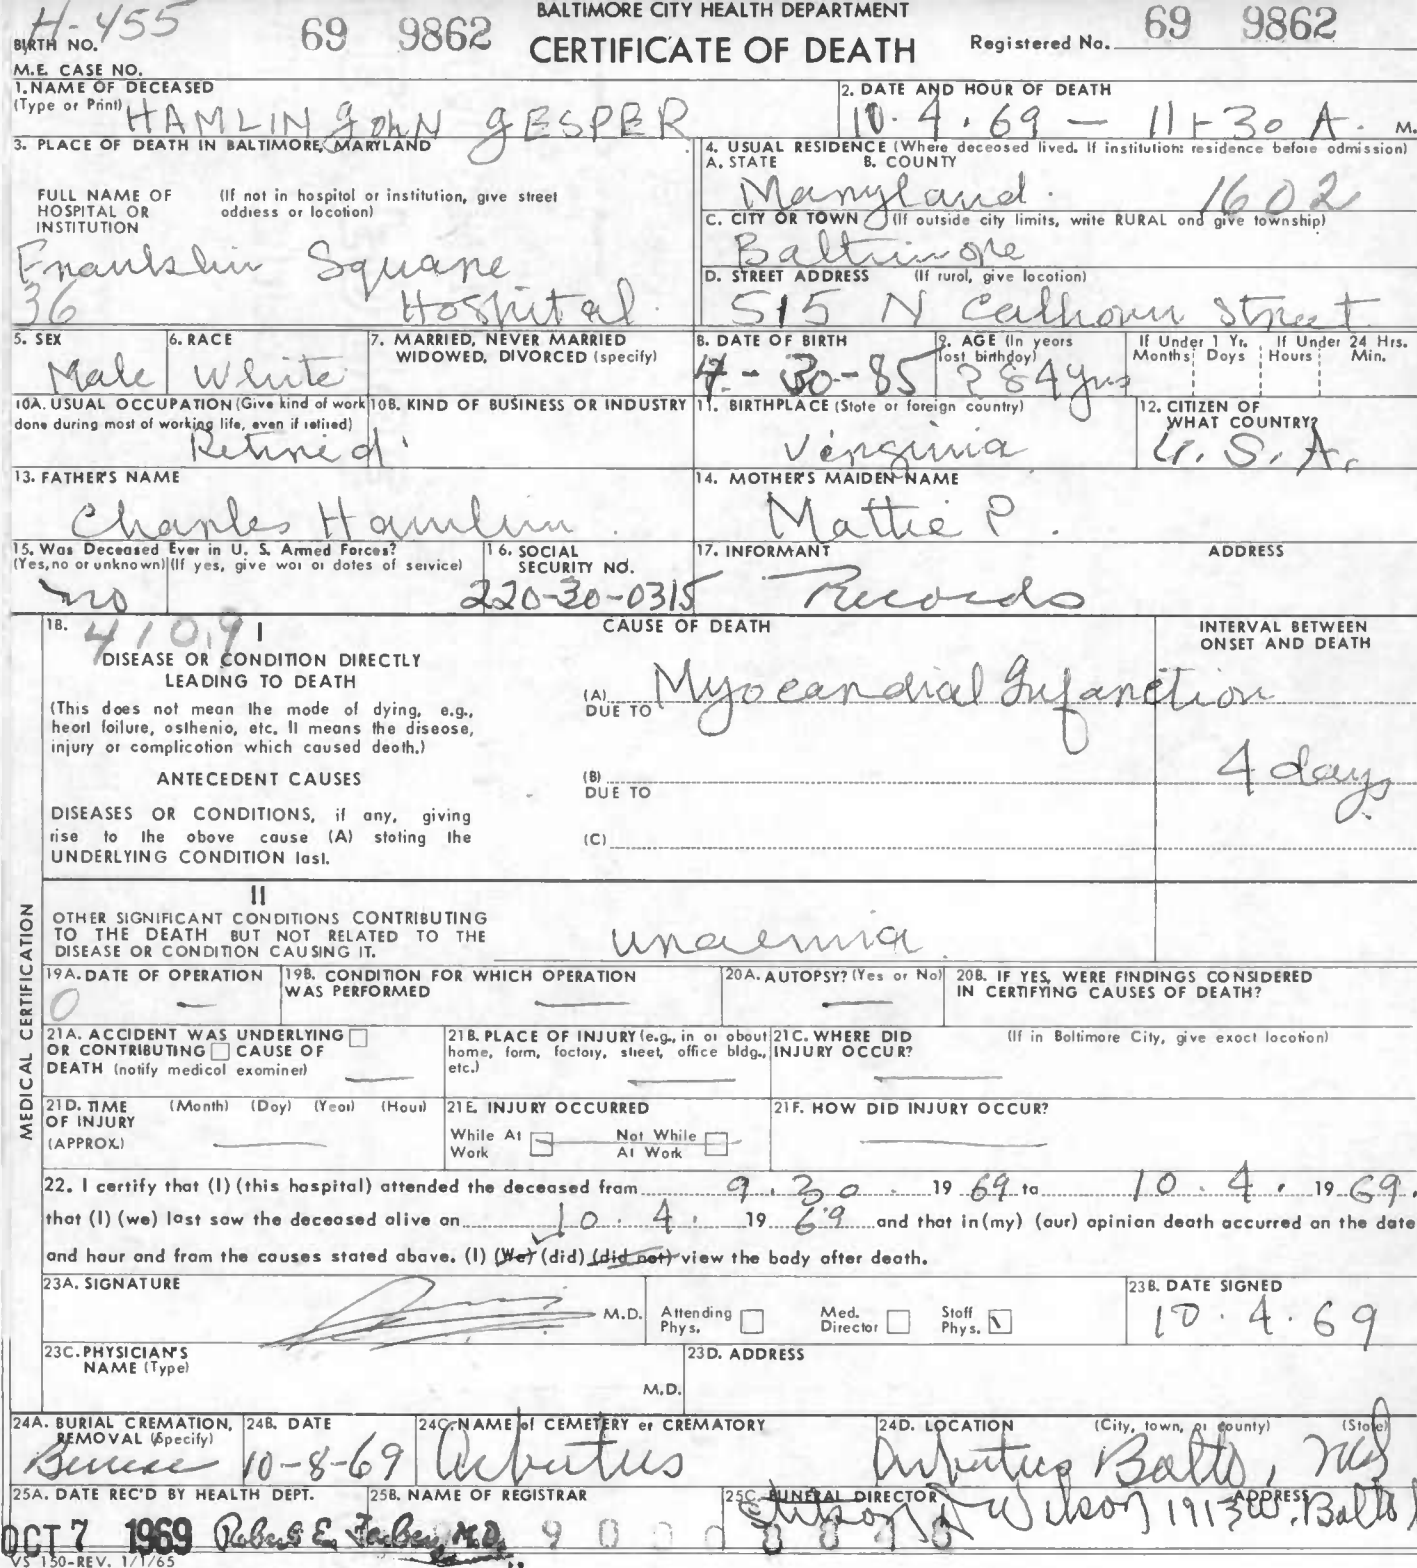 H-455
BALTIMORE CITY HEALTH DEPARTMENT
BIRTH NO. 69 9862 CERTIFICATE OF DEATH Registered No. 69 9862
M.E. CASE NO.
1. NAME OF DECEASED (Type or Print) HAMLIN JOHN GESPER
2. DATE AND HOUR OF DEATH 10.4.69 — 11-30 A. M.
3. PLACE OF DEATH IN BALTIMORE, MARYLAND
FULL NAME OF HOSPITAL OR INSTITUTION (If not in hospital or institution, give street address or location)
Franklin Square
36 Hospital.
4. USUAL RESIDENCE (Where deceased lived. If institution: residence before admission)
A. STATE B. COUNTY
Maryland. 1602
C. CITY OR TOWN (If outside city limits, write RURAL and give township)
Baltimore
D. STREET ADDRESS (If rural, give location)
515 N Calhoun Street
5. SEX Male
6. RACE White
7. MARRIED, NEVER MARRIED WIDOWED, DIVORCED (specify)
8. DATE OF BIRTH 4-30-85
9. AGE (In years last birthday) ? 84 yrs
If Under 1 Yr. Months Days If Under 24 Hrs. Hours Min.
10A. USUAL OCCUPATION (Give kind of work done during most of working life, even if retired) Retired
10B. KIND OF BUSINESS OR INDUSTRY
11. BIRTHPLACE (State or foreign country) Virginia
12. CITIZEN OF WHAT COUNTRY? U.S.A.
13. FATHER'S NAME Charles Hamlin.
14. MOTHER'S MAIDEN NAME Mattie P.
15. Was Deceased Ever in U. S. Armed Forces? (Yes, no or unknown) (If yes, give war or dates of service) no
16. SOCIAL SECURITY NO. 220-30-0315
17. INFORMANT ADDRESS Records
MEDICAL CERTIFICATION
18. 410.9 I
CAUSE OF DEATH
INTERVAL BETWEEN ONSET AND DEATH
DISEASE OR CONDITION DIRECTLY LEADING TO DEATH
(This does not mean the mode of dying, e.g., heart failure, asthenia, etc. It means the disease, injury or complication which caused death.)
(A) Myocardial Infarction
DUE TO
4 days
ANTECEDENT CAUSES
(B)
DUE TO
DISEASES OR CONDITIONS, if any, giving rise to the above cause (A) stating the UNDERLYING CONDITION last.
(C)
II
OTHER SIGNIFICANT CONDITIONS CONTRIBUTING TO THE DEATH BUT NOT RELATED TO THE DISEASE OR CONDITION CAUSING IT.
uraemia
19A. DATE OF OPERATION 0 —
19B. CONDITION FOR WHICH OPERATION WAS PERFORMED —
20A. AUTOPSY? (Yes or No) —
20B. IF YES, WERE FINDINGS CONSIDERED IN CERTIFYING CAUSES OF DEATH?
21A. ACCIDENT WAS UNDERLYING OR CONTRIBUTING CAUSE OF DEATH (notify medical examiner) —
21B. PLACE OF INJURY (e.g., in or about home, farm, factory, street, office bldg., etc.) —
21C. WHERE DID INJURY OCCUR? (If in Baltimore City, give exact location) —
21D. TIME OF INJURY (APPROX.) (Month) (Day) (Year) (Hour) —
21E. INJURY OCCURRED While At Work Not While At Work
21F. HOW DID INJURY OCCUR? —
22. I certify that (I) (this hospital) attended the deceased from 9.30. 19 69 to 10.4. 19 69.
that (I) (we) last saw the deceased alive on 10.4. 19 69 and that in (my) (our) opinion death occurred on the date
and hour and from the causes stated above. (I) (We) (did) (did not) view the body after death.
23A. SIGNATURE M.D. Attending Phys. Med. Director Staff Phys.
23B. DATE SIGNED 10.4.69
23C. PHYSICIAN'S NAME (Type) M.D.
23D. ADDRESS
24A. BURIAL CREMATION, REMOVAL (Specify) Burial
24B. DATE 10-8-69
24C. NAME of CEMETERY or CREMATORY Arbutus
24D. LOCATION (City, town, or county) (State) Arbutus Balto, Md
25A. DATE REC'D BY HEALTH DEPT. OCT 7 1969
25B. NAME OF REGISTRAR Robert E. Farber, M.D.
25C. FUNERAL DIRECTOR ADDRESS Wilson 1913 W. Balto
VS 150-REV. 1/1/65